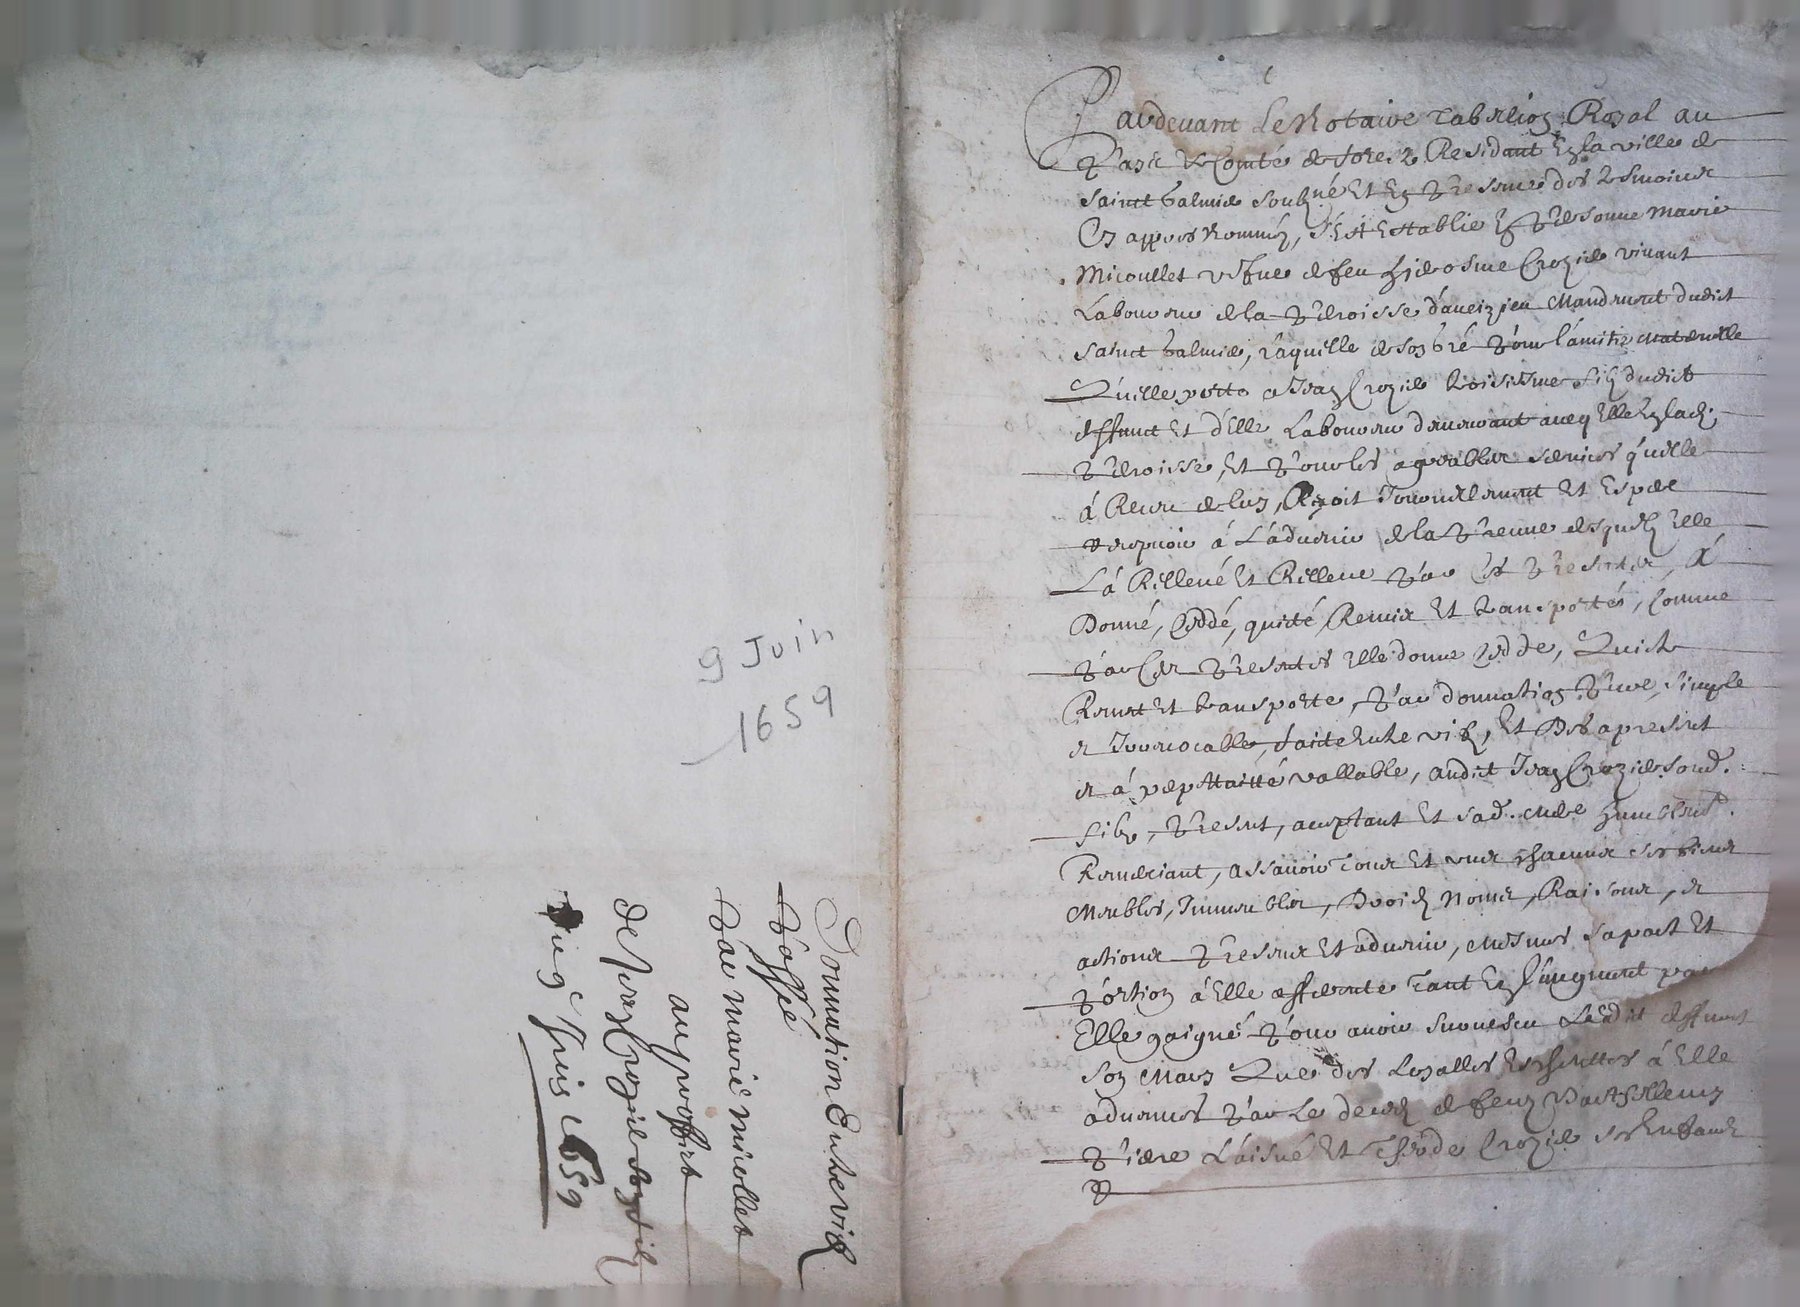 9 Juin
1659
Donnation Entre vifz
Passé
Par marie micollet
au proffict
De Jean Crozier son filz
Du 9e Juin 1659
Pardevant le Notaire Tabellion Royal au
Païs et Comté de Forez Residant En la ville de
sainct Galmier soubzné Et En presence des tesmoins
Cy appres Nommés, s'est Establie En personne marie
Micoullet vefve de feu Hierosme Crozier vivant
Laboureur de la Parroisse d'aveizieu Mandement dudict
sainct Galmier, Laquelle de son gré Pour l'amitié maternelle
Qu'elle porte a Jean Crozier troisiesme filz dudict
deffunct Et d'Elle Laboureur demeurant aveq Elle En lad.
Parroisse, Et Pour les agreables services qu'elle
á Receu de luy, Reçoit Journellement Et Espere
recepvoir á L'advenir de la Preuve desquelz Elle
L'á Rellevé Et Relleve Par Ces Presentes, Á
Donné, Ceddé, quitté, Remis Et transportés, Comme
Par Ces Presentes Elle donne Cedde, Quicte
Remet Et transporte, Par donnation Pure, simple
et Irrevocable, faite Entre vifz, Et Des a present
et á perpettuitté vallable, audict Jean Crozier sond.
filz, Present, acceptant Et sad. mere humblemt.
Remerciant, assavoir Tous Et uns chacuns ses biens
Meubles, Immeubles, Droictz Noms, Raisons, et
actions Presens Et advenir, mesmes sa part Et
Portion á Elle afferente Tant En l'augment par
Elle gaigné Pour avoir survescu Ledit deffunct
son Mary Que des Legalles Escheuttes á Elle
advenues Par Le decedz de feuz
Pierre L'aisné Et Crozier ses Enfans